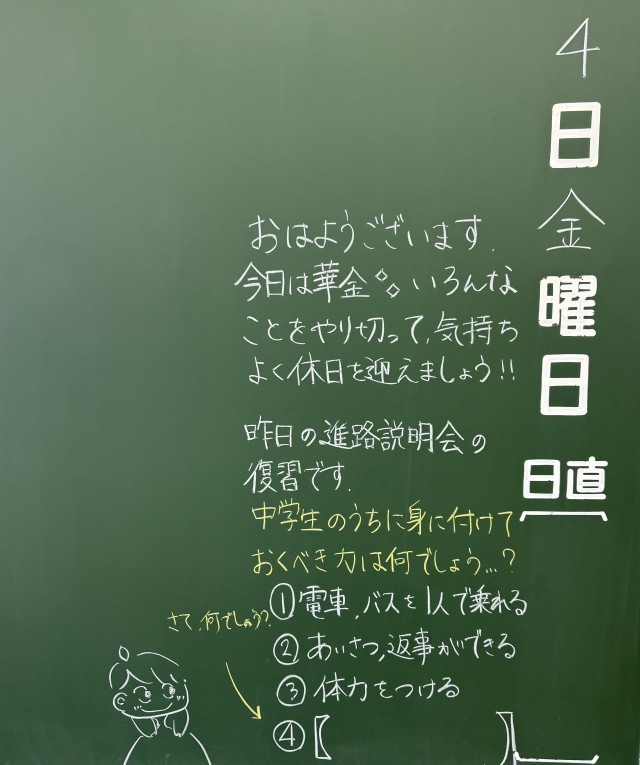 4日金曜日
日直
おはようございます.
今日は華金 いろんな
ことをやり切って,気持ち
よく休日を迎えましょう!!
昨日の進路説明会の
復習です.
中学生のうちに身に付けて
おくべき力は何でしょう…?
①電車,バスを1人で乗れる
②あいさつ,返事ができる
③体力をつける
さて,何でしょう?
④【 】